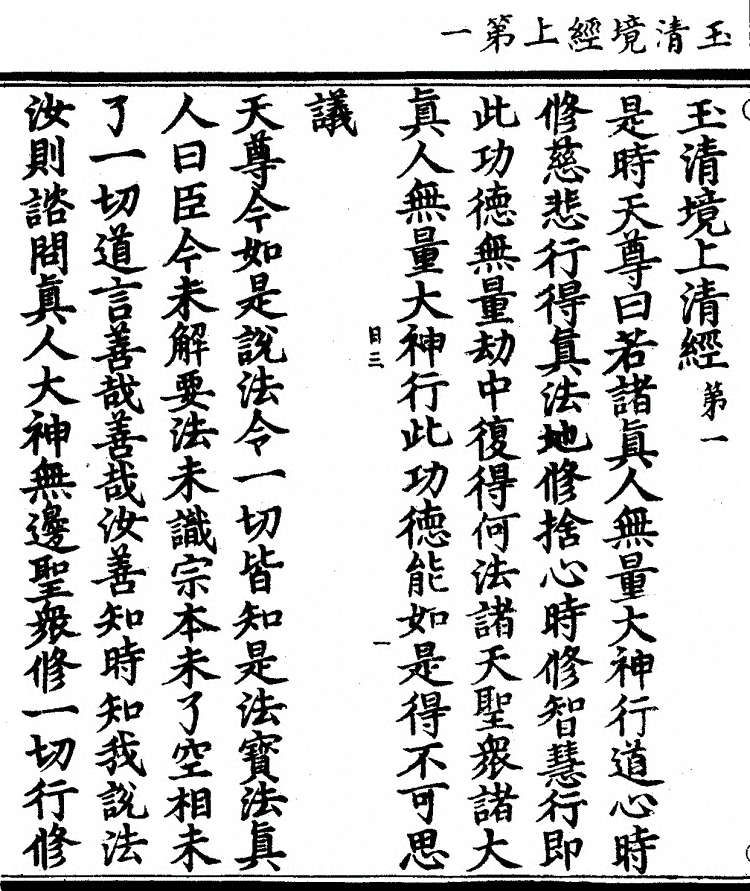 玉清境經上第一
玉清境上清經第一
是時天尊曰若諸眞人無量大神行道心時
修慈悲行得眞法地修捨心時修智慧行即
此功德無量劫中復得何法諸天聖衆諸大
眞人無量大神行此功德能如是得不可思
目三 一
議
天尊今如是說法令一切皆知是法寶法眞
人曰臣今未解要法未識宗本未了空相未
了一切道言善哉善哉汝善知時知我說法
汝則諮問眞人大神無邊聖衆修一切行修